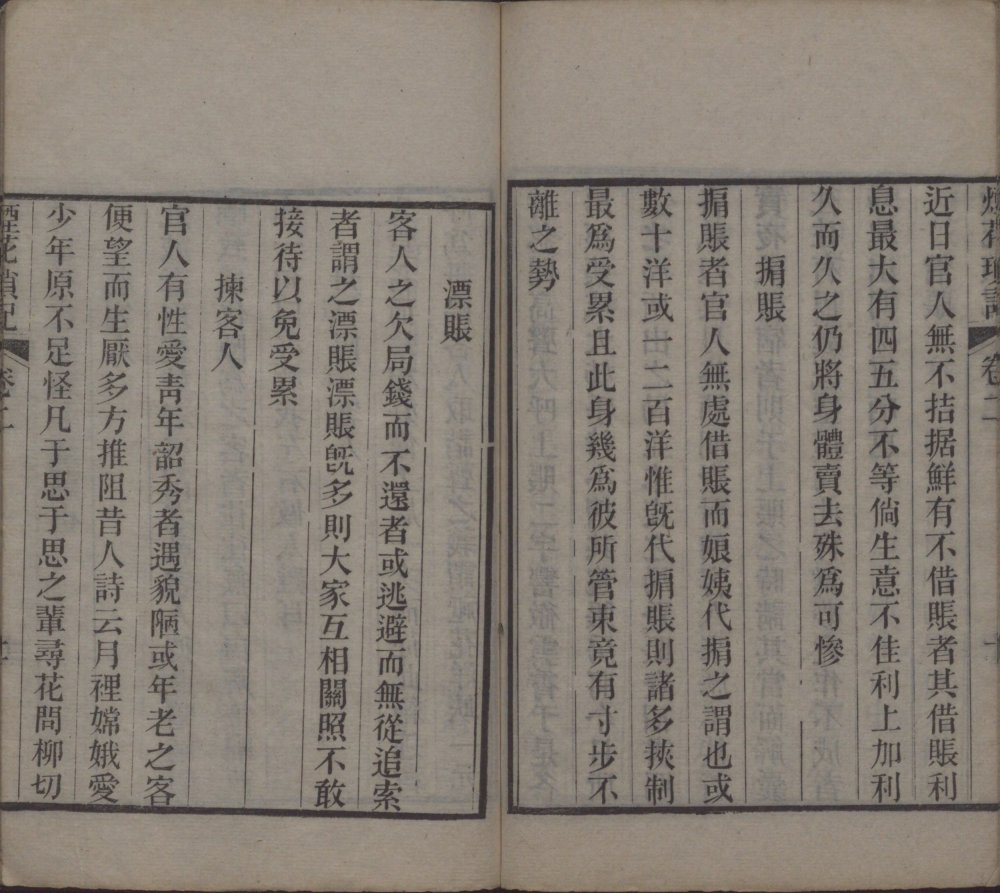 卷二
近日官人無不拮据鮮有不借賬者其借賬利
息最大有四五分不等倘生意不佳利上加利
久而久之仍將身體賣去殊爲可慘
掮賬
掮賬者官人無處借賬而娘姨代掮之謂也或
數十洋或一二百洋惟旣代掮賬則諸多挾制
最爲受累且此身幾爲彼所管束竟有寸步不
離之勢
漂賬
客人之欠局錢而不還者或逃避而無從追索
者謂之漂賬漂賬旣多則大家互相關照不敢
接待以免受累
揀客人
官人有性愛靑年韶秀者遇貌陋或年老之客
便望而生厭多方推阻昔人詩云月裡嫦娥愛
少年原不足怪凡于思于思之輩尋花問柳切
煙花瑣記 卷二